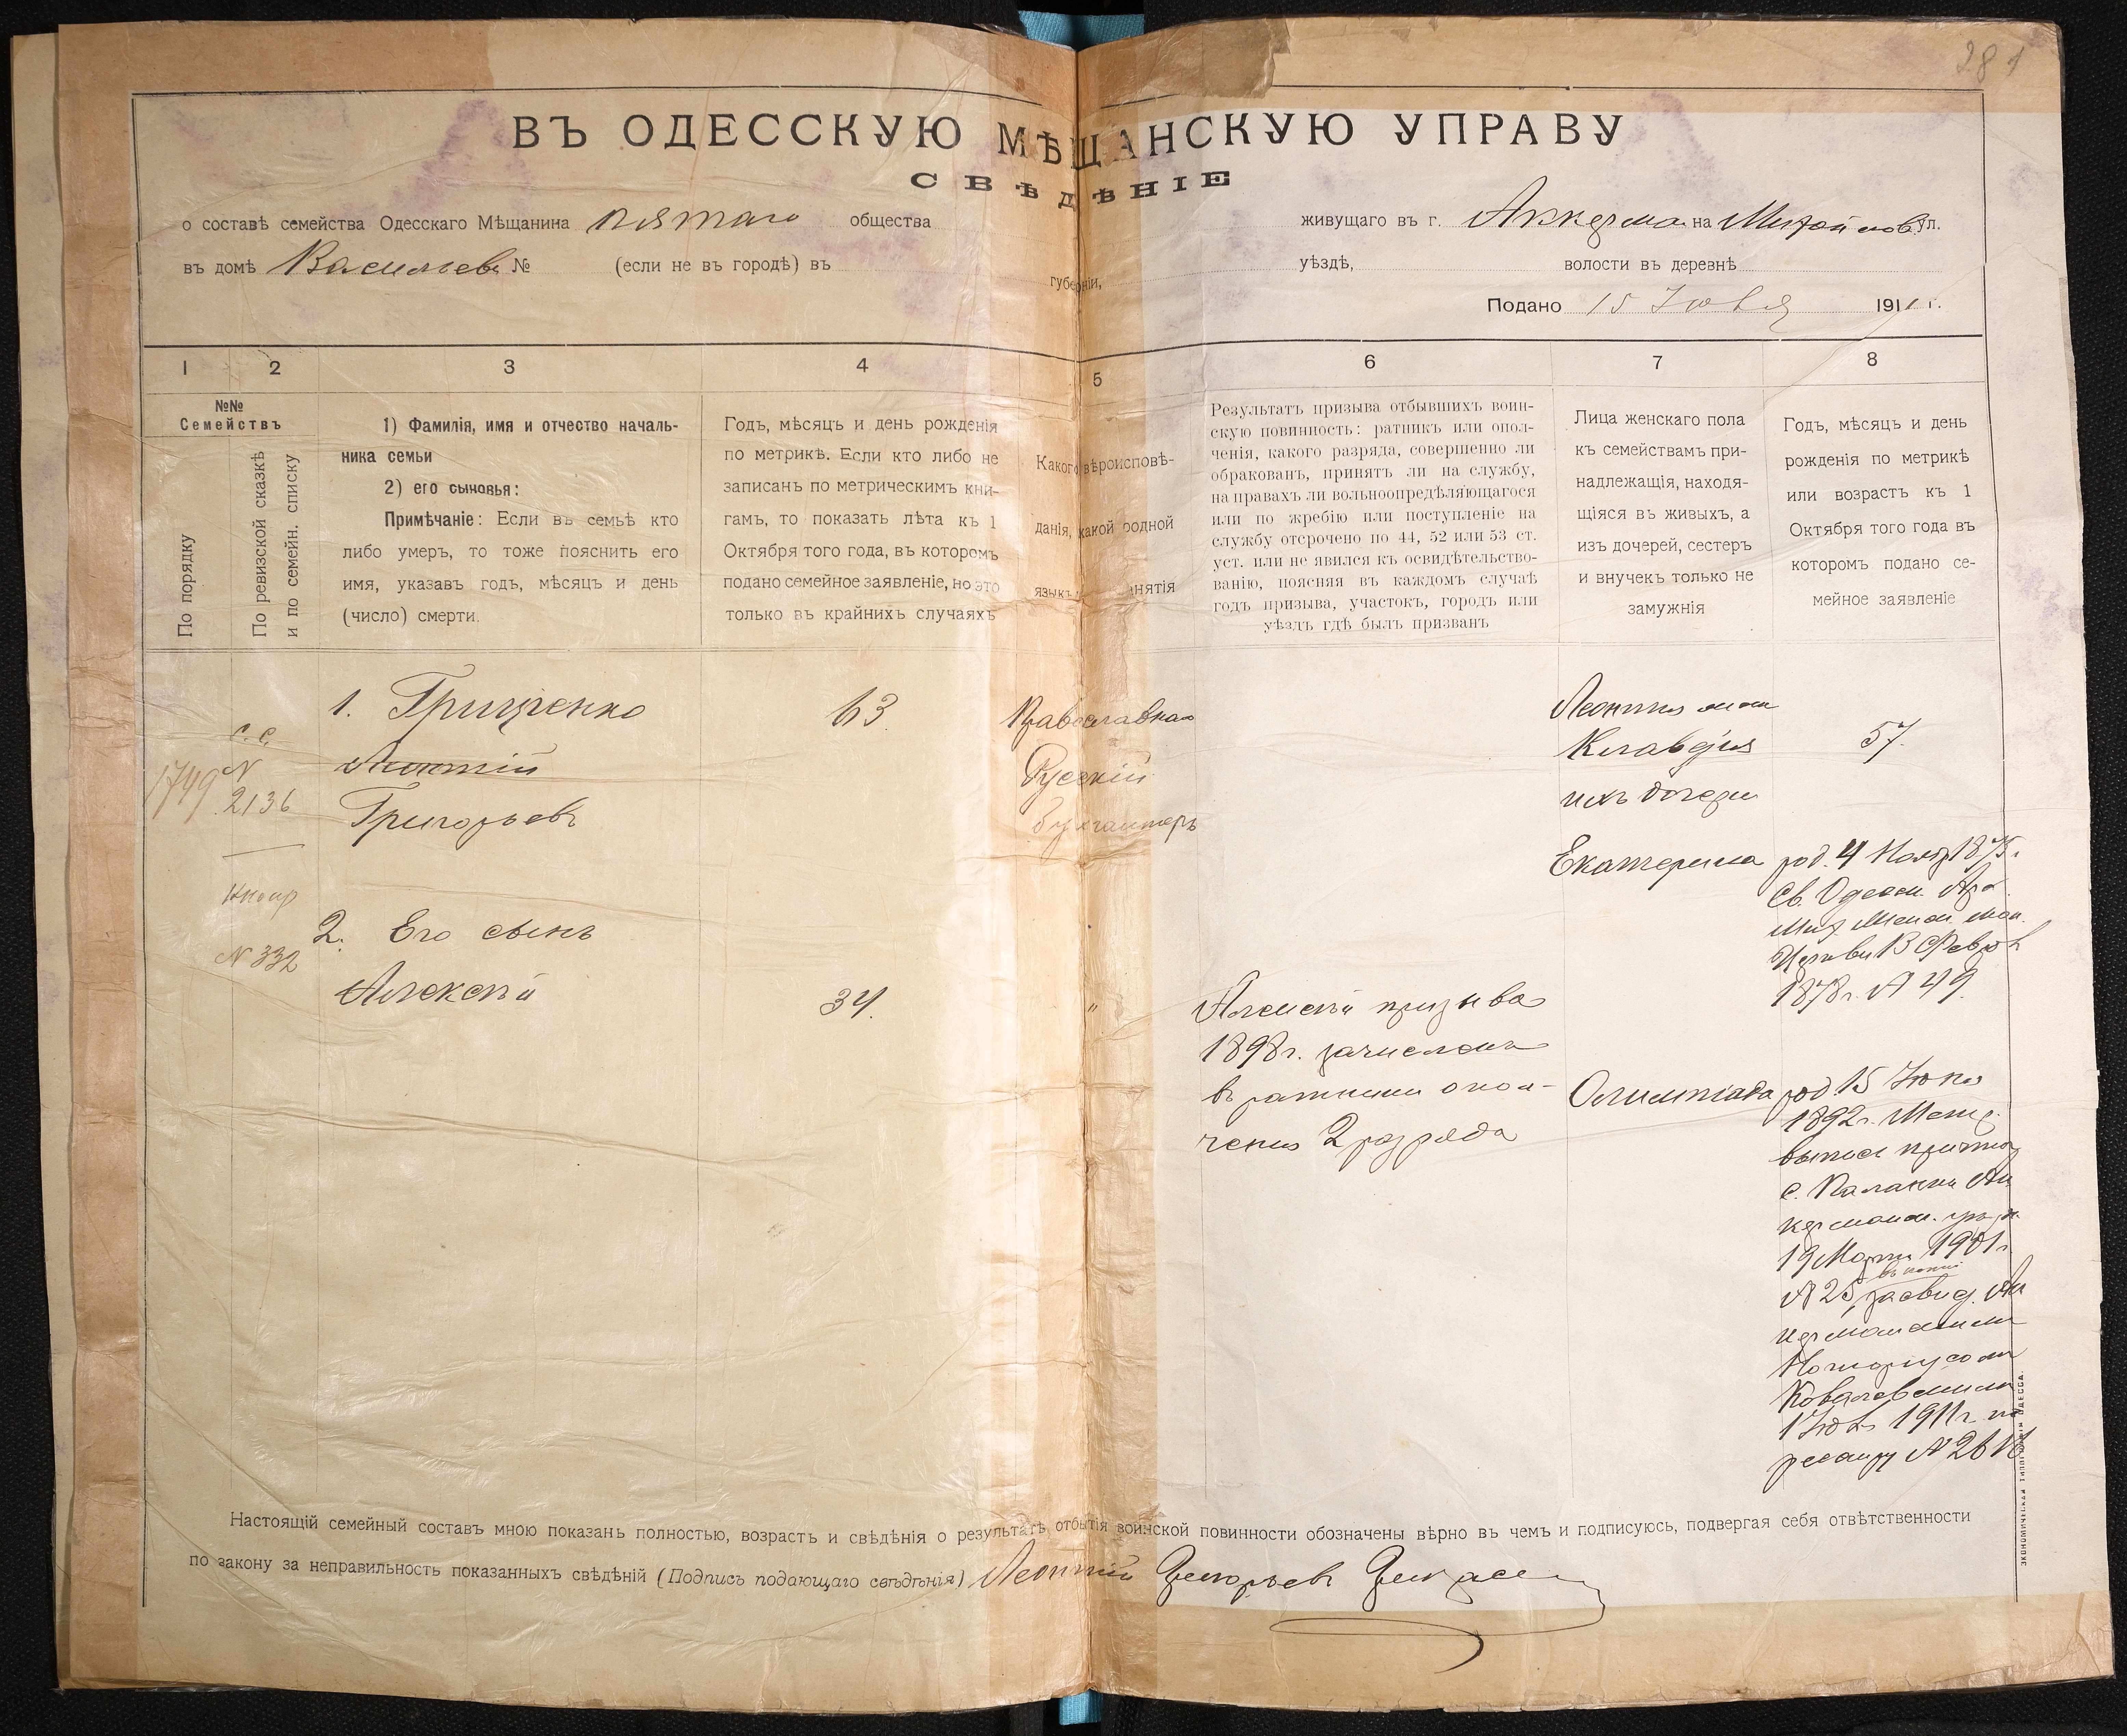 281
ВЪ ОДЕССКУЮ МѢЩАНСКУЮ УПРАВУ
СВѢДѢНІЕ
о составѣ семейства Одесскаго Мѣщанина пятаго общества живущаго въ г. Аккерма на ул.
въ домѣ Васильева № (если не въ городѣ) въ губерніи, уѣздѣ, волости въ деревнѣ
Подано 15 Іюля 1911 г.
1 2 3 4 5 6 7 8
№№
Семействъ
По порядку
По ревизской сказкѣ
и по семейн. списку
1) Фамилія, имя и отчество началь-
ника семьи
2) его сыновья:
Примѣчаніе: Если въ семьѣ кто
либо умеръ, то тоже пояснить его
имя, указавъ годъ, мѣсяцъ и день
(число) смерти.
Годъ, мѣсяцъ и день рожденія
по метрикѣ. Если кто либо не
записанъ по метрическимъ кни-
гамъ, то показать лѣта къ 1
Октября того года, въ которомъ
подано семейное заявленіе, но это
только въ крайнихъ случаяхъ
Какого вѣроисповѣ-
данія, какой родной
языкъ нятія
Результатъ призыва отбывшихъ воин-
скую повинность: ратникъ или опол-
ченія, какого разряда, совершенно ли
обракованъ, принятъ ли на службу,
на правахъ ли вольноопредѣляющагося
или по жребію или поступленіе на
службу отсрочено по 44, 52 или 53 ст.
уст. или не явился къ освидѣтельство-
ванію, поясняя въ каждомъ случаѣ
годъ призыва, участокъ, городъ или
уѣздъ гдѣ былъ призванъ
Лица женскаго пола
къ семействамъ при-
надлежащія, находя-
щіяся въ живыхъ, а
изъ дочерей, сестеръ
и внучекъ только не
замужнія
Годъ, мѣсяцъ и день
рожденія по метрикѣ
или возрастъ къ 1
Октября того года въ
которомъ подано се-
мейное заявленіе
1749
с. с.
N
2136
N 332
1. Грищенко
Леонтій
Григорьевъ
63
Православная
Русскій
бухгалтеръ
Клавдія
57.
ихъ дочери
Екатерина род. 4 Нояб 1875 г.
Св. Одесск.
Церкви 13 Февр
1878 г. № 49.
2. Его сынъ
Алексѣй
34.
"
Алексѣй призыва
1898 г. зачисленъ
въ ратники опол-
ченія 2 разряда
Олимпіада род 15 Іюня
1892 г. Метр.
выпись
с. Паланки Ак
керманск.
19 Марта 1901 г.
№ 25, въ копіи засвид. Ак
керманскимъ
Нотаріусомъ
Ковалевскимъ
1911 г. по
реестру №
Настоящій семейный составъ мною показанъ полностью, возрастъ и свѣдѣнія о результатѣ отбытія воинской повинности обозначены вѣрно въ чемъ и подписуюсь, подвергая себя отвѣтственности
по закону за неправильность показанныхъ свѣдѣній (Подпись подающаго свѣдѣнія) Леонтій Григорьевъ
ЭКОНОМИЧЕСКАЯ ТИПОГРАФІЯ ОДЕССА.